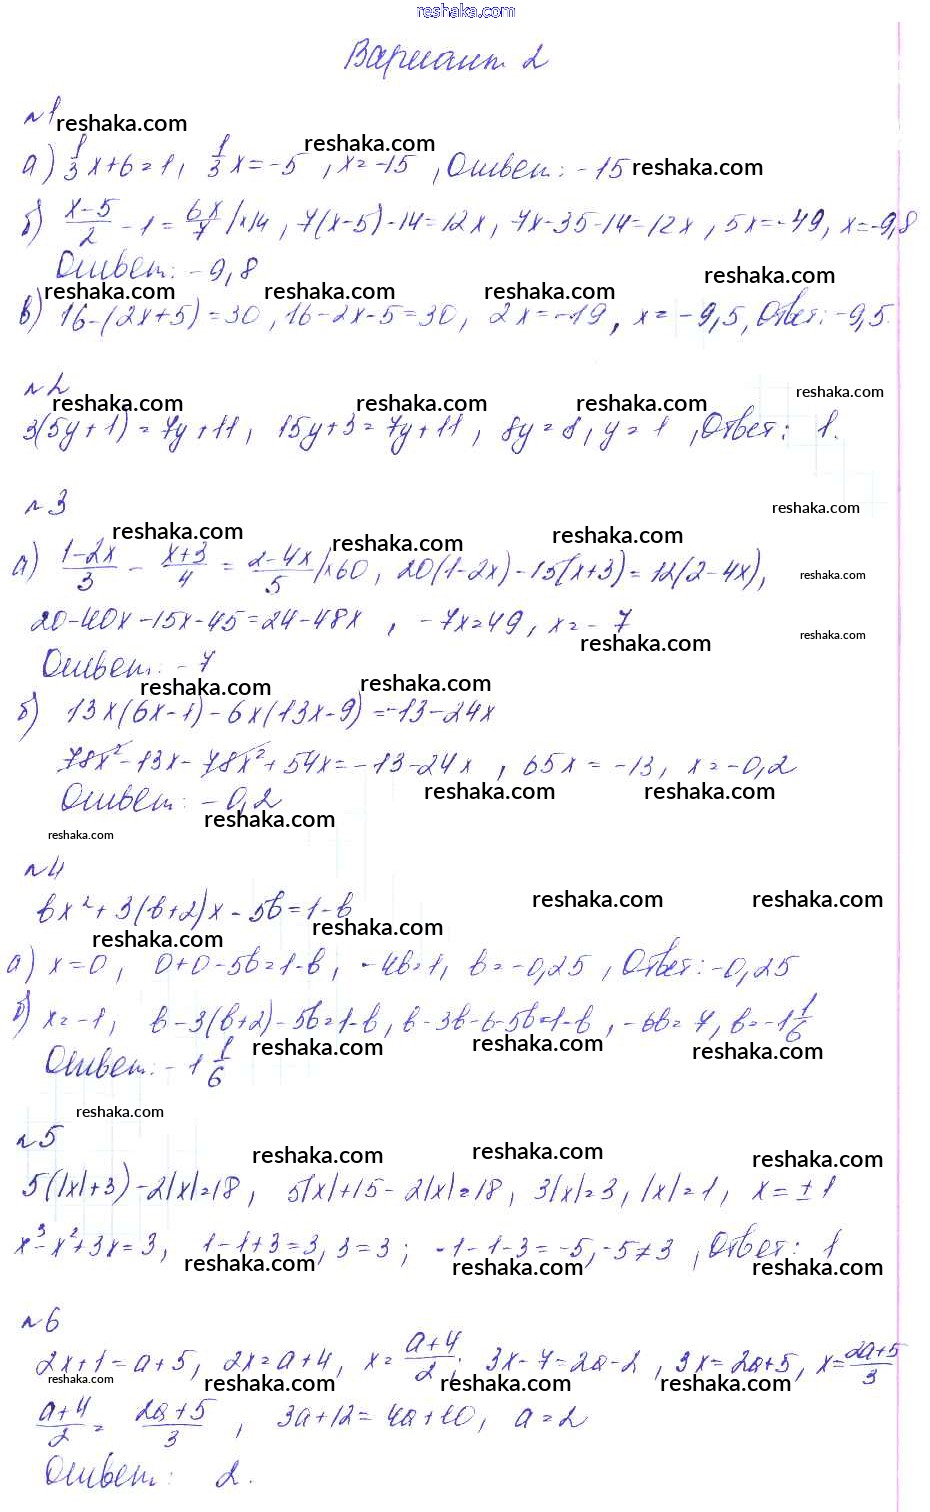 reshaka.com
Вариант 2
№1
reshaka.com
reshaka.com
а) 1/3 x+6=1, 1/3 x=-5, x=-15, Ответ: -15 reshaka.com
б) (x-5)/2 - 1 = 6x/7 |×14, 7(x-5)-14=12x, 7x-35-14=12x, 5x=-49, x=-9,8
Ответ: -9,8
reshaka.com
reshaka.com reshaka.com reshaka.com
в) 16-(2x+5)=30, 16-2x-5=30, 2x=-19, x=-9,5, Ответ: -9,5.
№2
reshaka.com reshaka.com reshaka.com reshaka.com
3(5y+1)=7y+11, 15y+3=7y+11, 8y=8, y=1, Ответ: 1.
№3
reshaka.com
reshaka.com reshaka.com reshaka.com
а) (1-2x)/3 - (x+3)/4 = (2-4x)/5 |×60, 20(1-2x)-15(x+3)=12(2-4x),
reshaka.com
20-40x-15x-45=24-48x, -7x=49, x=-7
reshaka.com reshaka.com
Ответ: -7
reshaka.com reshaka.com
б) 13x(6x-1)-6x(13x-9)=-13-24x
78x²-13x-78x²+54x=-13-24x, 65x=-13, x=-0,2
reshaka.com reshaka.com
Ответ: -0,2
reshaka.com
reshaka.com
№4
reshaka.com reshaka.com
bx²+3(b+2)x-5b=1-b
reshaka.com reshaka.com
а) x=0, 0+0-5b=1-b, -4b=1, b=-0,25, Ответ: -0,25
б) x=-1, b-3(b+2)-5b=1-b, b-3b-6-5b=1-b, -6b=7, b=-1 1/6
reshaka.com reshaka.com reshaka.com
Ответ: -1 1/6
reshaka.com
№5
reshaka.com reshaka.com reshaka.com
5(|x|+3)-2|x|=18, 5|x|+15-2|x|=18, 3|x|=3, |x|=1, x=±1
x³-x²+3x=3, 1-1+3=3, 3=3; -1-1-3=-5, -5≠3, Ответ: 1
reshaka.com reshaka.com reshaka.com
№6
2x+1=a+5, 2x=a+4, x=(a+4)/2; 3x-7=2a-2, 3x=2a+5, x=(2a+5)/3
reshaka.com reshaka.com reshaka.com reshaka.com
(a+4)/2 = (2a+5)/3, 3a+12=4a+10, a=2
Ответ: 2.